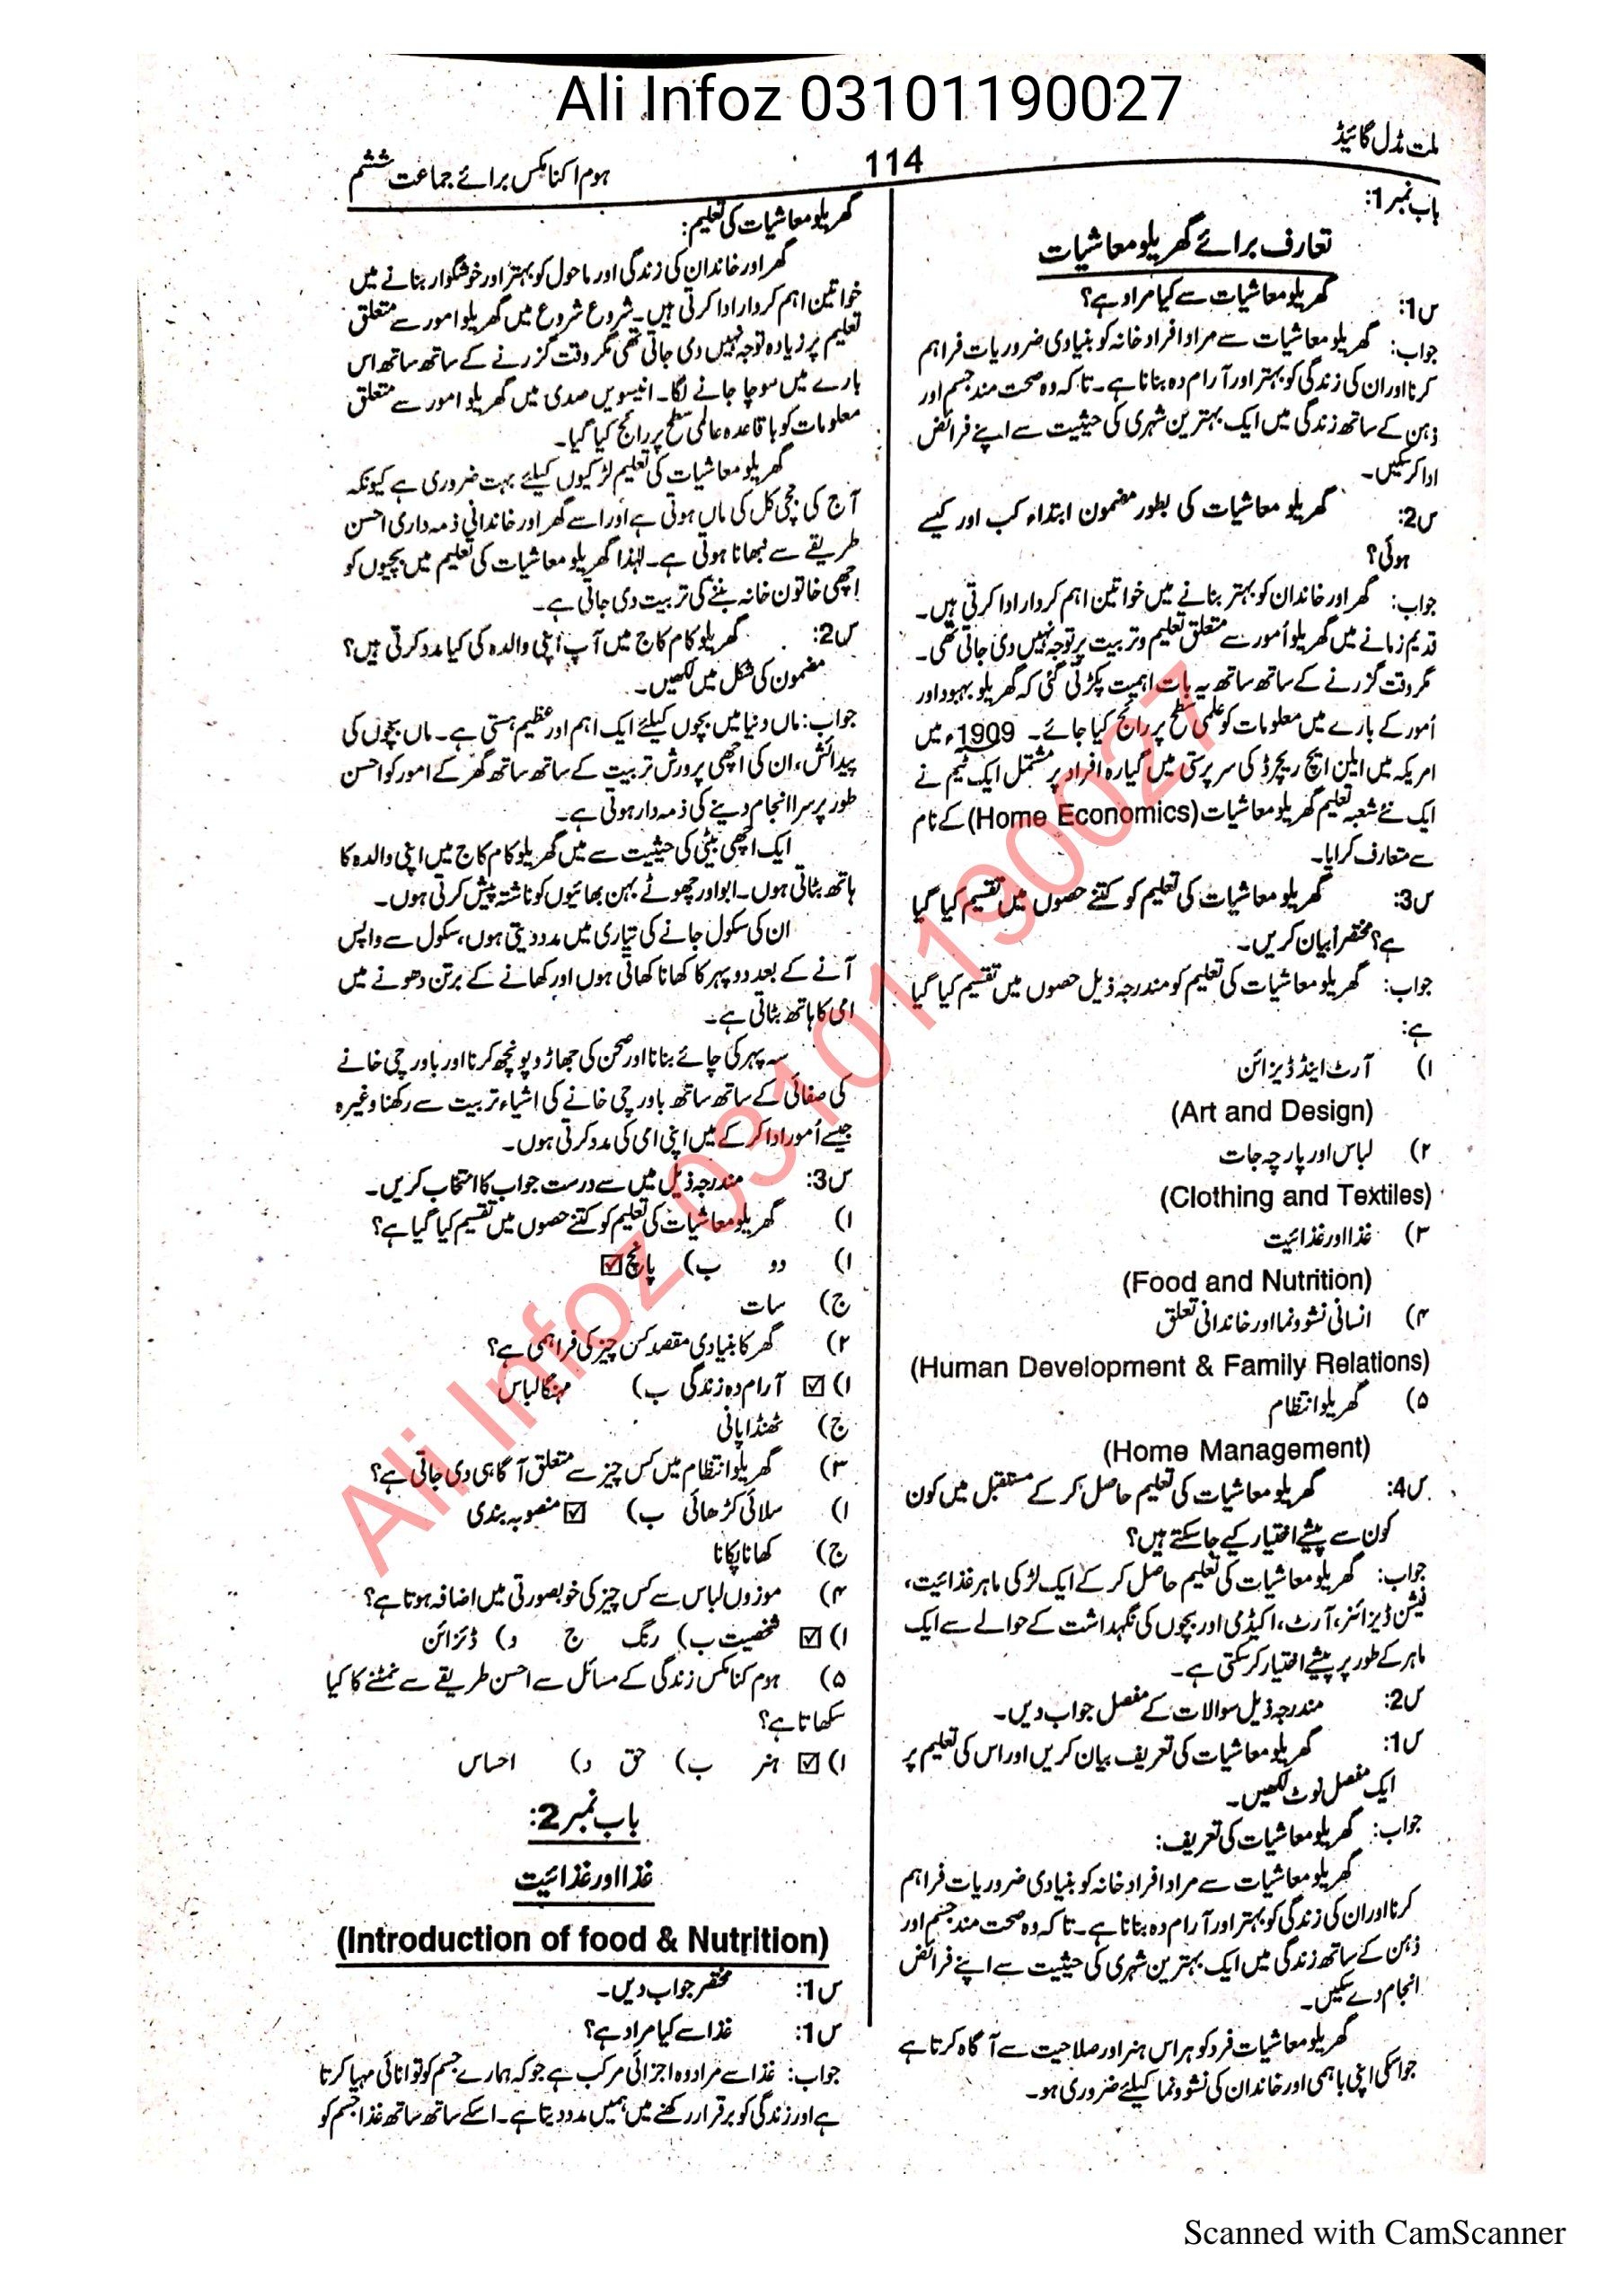 Ali Infoz 03101190027
ملت مڈل گائیڈ
114
ہوم اکنامکس برائے جماعت ششم
باب نمبر 1:
تعارف برائے گھریلو معاشیات
س1: گھریلو معاشیات سے کیا مراد ہے؟
جواب: گھریلو معاشیات سے مراد افراد خانہ کو بنیادی ضروریات فراہم
کرنا اور ان کی زندگی کو بہتر اور آرام دہ بنانا ہے۔ تا کہ وہ صحت مند جسم اور
ذہن کے ساتھ زندگی میں ایک بہترین شہری کی حیثیت سے اپنے فرائض
ادا کر سکیں۔
س2: گھریلو معاشیات کی بطور مضمون ابتداء کب اور کیسے
ہوئی؟
جواب: گھر اور خاندان کو بہتر بنانے میں خواتین اہم کردار ادا کرتی ہیں۔
قدیم زمانے میں گھریلو اُمور سے متعلق تعلیم و تربیت پر توجہ نہیں دی جاتی تھی۔
مگر وقت گزرنے کے ساتھ ساتھ یہ بات اہمیت پکڑتی گئی کہ گھریلو بہبود اور
اُمور کے بارے میں معلومات کو علمی سطح پر رائج کیا جائے۔ 1909ء میں
امریکہ میں ایلن ایچ رچرڈ کی سرپرستی میں گیارہ افراد پر مشتمل ایک ٹیم نے
ایک نئے شعبہ تعلیم گھریلو معاشیات (Home Economics) کے نام
سے متعارف کرایا۔
س3: گھریلو معاشیات کی تعلیم کو کتنے حصوں میں تقسیم کیا گیا
ہے؟ مختصراً بیان کریں۔
جواب: گھریلو معاشیات کی تعلیم کو مندرجہ ذیل حصوں میں تقسیم کیا گیا
ہے:
۱) آرٹ اینڈ ڈیزائن
(Art and Design)
۲) لباس اور پارچہ جات
(Clothing and Textiles)
۳) غذا اور غذائیت
(Food and Nutrition)
۴) انسانی نشوونما اور خاندانی تعلق
(Human Development & Family Relations)
۵) گھریلو انتظام
(Home Management)
س4: گھریلو معاشیات کی تعلیم حاصل کر کے مستقبل میں کون
کون سے پیشے اختیار کیے جا سکتے ہیں؟
جواب: گھریلو معاشیات کی تعلیم حاصل کر کے ایک لڑکی ماہر غذائیت،
فیشن ڈیزائنر، آرٹ، اکیڈمی اور بچوں کی نگہداشت کے حوالے سے ایک
ماہر کے طور پر پیشے اختیار کر سکتی ہے۔
س2: مندرجہ ذیل سوالات کے مفصل جواب دیں۔
س1: گھریلو معاشیات کی تعریف بیان کریں اور اس کی تعلیم پر
ایک مفصل نوٹ لکھیں۔
جواب: گھریلو معاشیات کی تعریف:
گھریلو معاشیات سے مراد افراد خانہ کو بنیادی ضروریات فراہم
کرنا اور ان کی زندگی کو بہتر اور آرام دہ بنانا ہے۔ تا کہ وہ صحت مند جسم اور
ذہن کے ساتھ زندگی میں ایک بہترین شہری کی حیثیت سے اپنے فرائض
انجام دے سکیں۔
گھریلو معاشیات فرد کو ہر اس ہنر اور صلاحیت سے آگاہ کرتا ہے
جو اسکی اپنی باہمی اور خاندان کی نشوونما کیلئے ضروری ہو۔
گھریلو معاشیات کی تعلیم:
گھر اور خاندان کی زندگی اور ماحول کو بہتر اور خوشگوار بنانے میں
خواتین اہم کردار ادا کرتی ہیں۔ شروع شروع میں گھریلو امور سے متعلق
تعلیم پر زیادہ توجہ نہیں دی جاتی تھی مگر وقت گزرنے کے ساتھ ساتھ اس
بارے میں سوچا جانے لگا۔ انیسویں صدی میں گھریلو امور سے متعلق
معلومات کو باقاعدہ عالمی سطح پر رائج کیا گیا۔
گھریلو معاشیات کی تعلیم لڑکیوں کیلئے بہت ضروری ہے کیونکہ
آج کی بچی کل کی ماں ہوتی ہے اور اسے گھر اور خاندانی ذمہ داری احسن
طریقے سے نبھانا ہوتی ہے۔ لہٰذا گھریلو معاشیات کی تعلیم میں بچیوں کو
اچھی خاتون خانہ بننے کی تربیت دی جاتی ہے۔
س2: گھریلو کام کاج میں آپ اپنی والدہ کی کیا مدد کرتی ہیں؟
مضمون کی شکل میں لکھیں۔
جواب: ماں دنیا میں بچوں کیلئے ایک اہم اور عظیم ہستی ہے۔ ماں بچوں کی
پیدائش، ان کی اچھی پرورش تربیت کے ساتھ ساتھ گھر کے امور کو احسن
طور پر سرا انجام دینے کی ذمہ دار ہوتی ہے۔
ایک اچھی بیٹی کی حیثیت سے میں گھریلو کام کاج میں اپنی والدہ کا
ہاتھ بٹاتی ہوں۔ ابو اور چھوٹے بہن بھائیوں کو ناشتہ پیش کرتی ہوں۔
ان کی سکول جانے کی تیاری میں مدد دیتی ہوں، سکول سے واپس
آنے کے بعد دوپہر کا کھانا کھاتی ہوں اور کھانے کے برتن دھونے میں
امی کا ہاتھ بٹاتی ہے۔
سہ پہر کی چائے بنانا اور صحن کی جھاڑ و پونچھ کرنا اور باورچی خانے
کی صفائی کے ساتھ ساتھ باورچی خانے کی اشیاء تربیت سے رکھنا وغیرہ
جیسے اُمور ادا کر کے میں اپنی امی کی مدد کرتی ہوں۔
س3: مندرجہ ذیل میں سے درست جواب کا انتخاب کریں۔
۱) گھریلو معاشیات کی تعلیم کو کتنے حصوں میں تقسیم کیا گیا ہے؟
ا) دو ب) پانچ ☑
ج) سات
۲) گھر کا بنیادی مقصد کس چیز کی فراہمی ہے؟
ا) ☑ آرام دہ زندگی ب) مہنگا لباس
ج) ٹھنڈا پانی
۳) گھریلو انتظام میں کس چیز سے متعلق آگاہی دی جاتی ہے؟
ا) سلائی کڑھائی ب) ☑ منصوبہ بندی
ج) کھانا پکانا
۴) موزوں لباس سے کس چیز کی خوبصورتی میں اضافہ ہوتا ہے؟
ا) ☑ شخصیت ب) رنگ ج د) ڈئزائن
۵) ہوم کنامکس زندگی کے مسائل سے احسن طریقے سے نمٹنے کا کیا
سکھاتا ہے؟
ا) ☑ ہنر ب) حق د) احساس
باب نمبر 2:
غذا اور غذائیت
(Introduction of food & Nutrition)
س1: مختصر جواب دیں۔
س1: غذا سے کیا مراد ہے؟
جواب: غذا سے مراد وہ اجزائی مرکب ہے جو کہ ہمارے جسم کو توانائی مہیا کرتا
ہے اور زندگی کو برقرار رکھنے میں ہمیں مدد دیتا ہے۔ اسکے ساتھ ساتھ غذا جسم کو
Ali Infoz 03101190027
Scanned with CamScanner